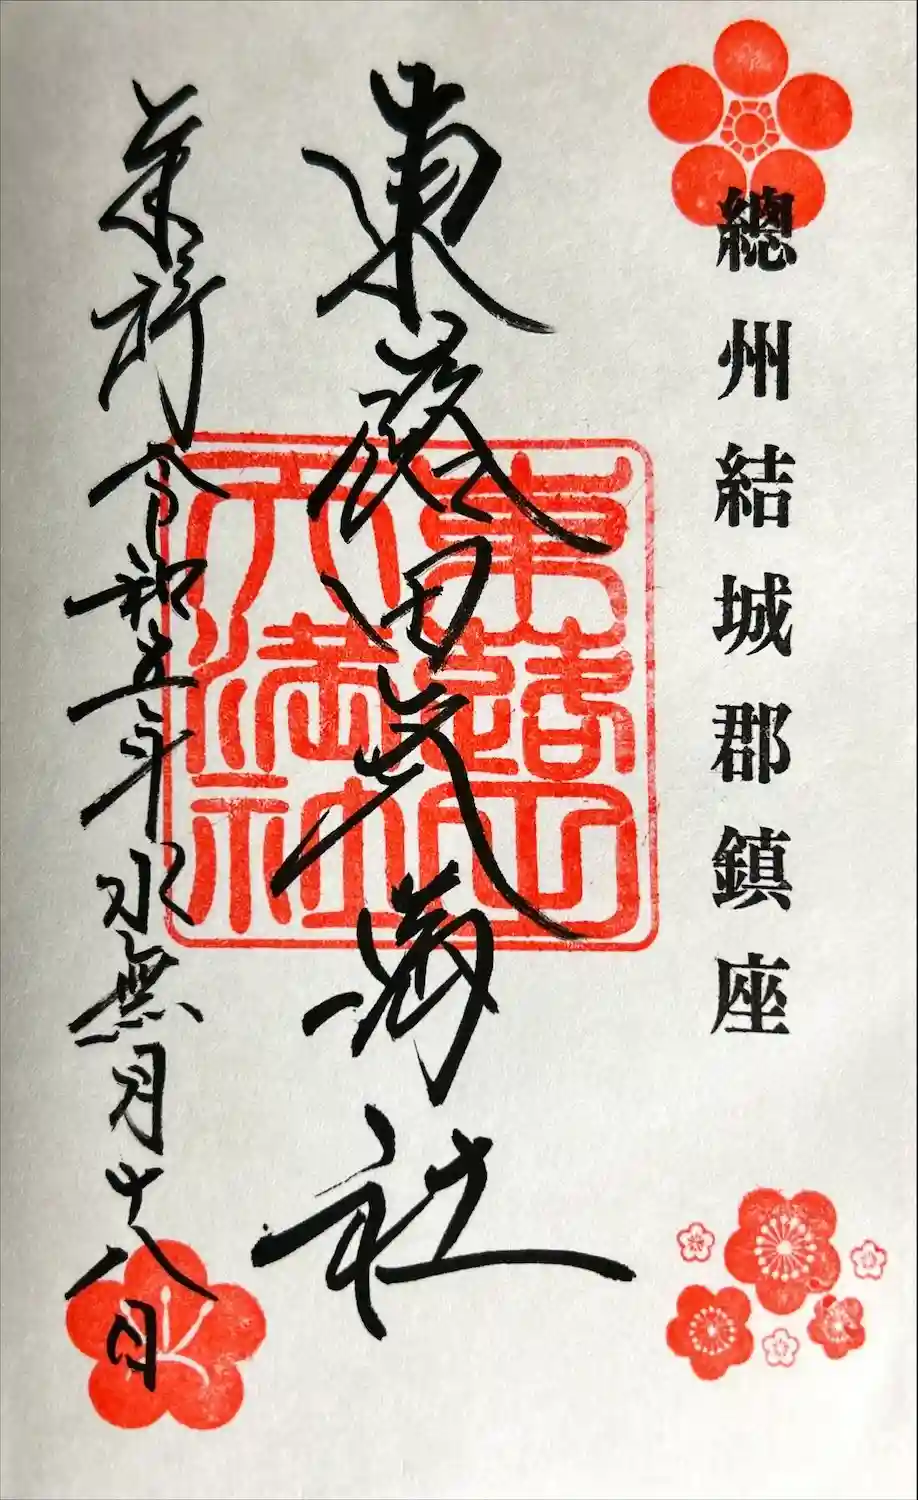 總州結城郡鎮座
東蕗田天満社
令和五年水無月十八日
東蕗田
天満社